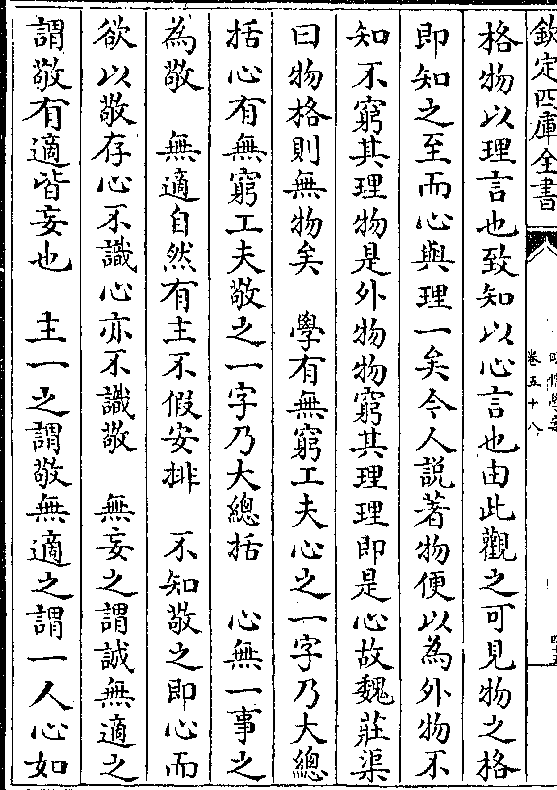 欽定四庫全書
卷五十八
格物以理言也致知以心言也由此觀之可見物之格
即知之至而心與理一矣今人說著物便以為外物不
知不窮其理物是外物物窮其理理即是心故魏莊渠
曰物格則無物矣　學有無窮工夫心之一字乃大總
括心有無窮工夫敬之一字乃大總括　心無一事之
為敬　無適自然有主不假安排　不知敬之即心而
欲以敬存心不識心亦不識敬　無妄之謂誠無適之
謂敬有適皆妄也　主一之謂敬無適之謂一人心如